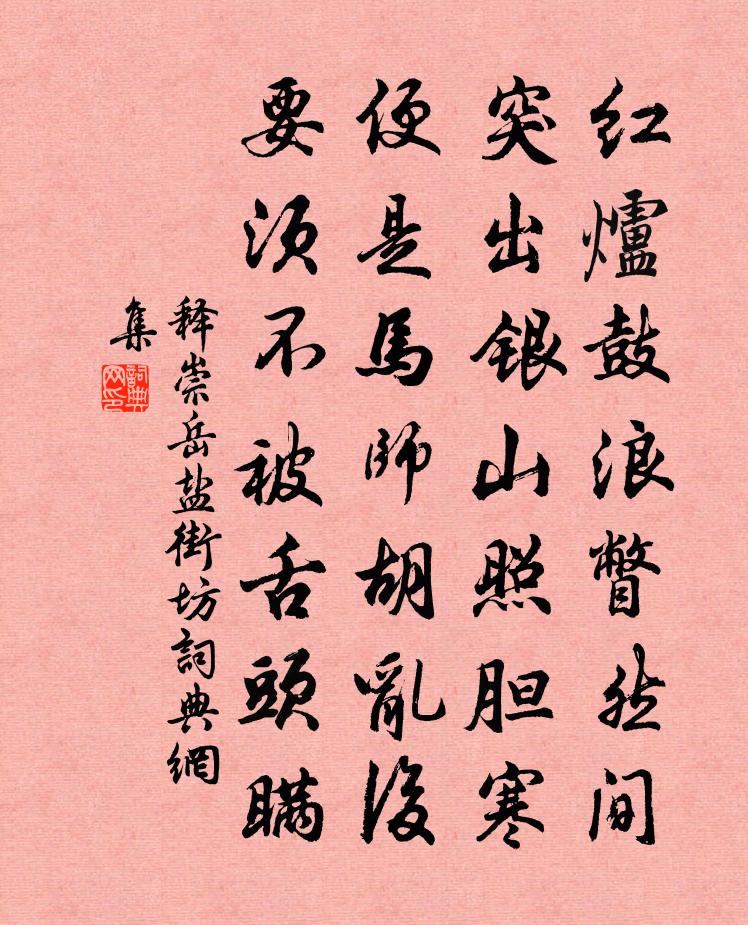 红爐鼓浪瞥然间
突出銀山照胆寒
便是馬師胡亂後
要須不被舌頭瞞
释崇岳盐街坊詞典網
集
詞典
网印